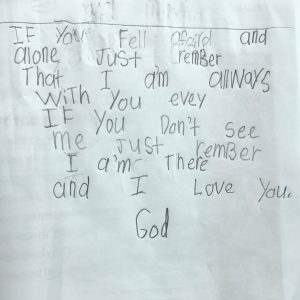 IF You Fell afaild and
alone Just rember
That I a'm allWAYS
With You evey
IF You Don't see
me Just rember
I a'm There
and I Love You.
God